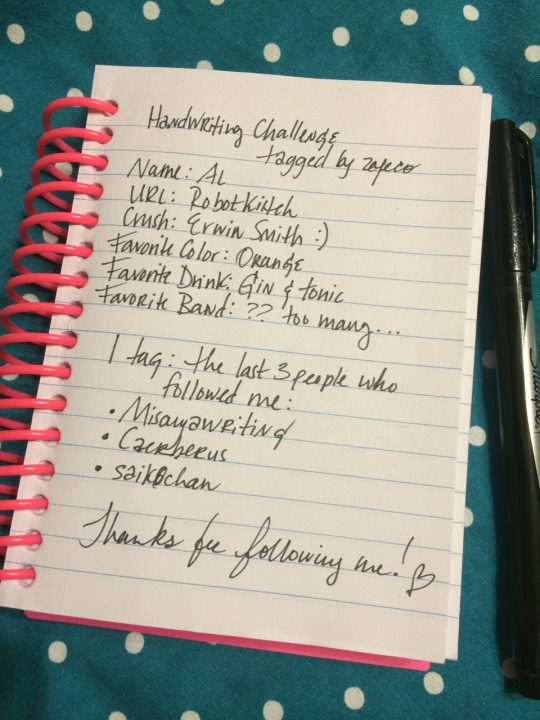 Handwriting Challenge
tagged by zapeco
Name: AL
URL: RobotKittch
Crush: Erwin Smith :)
Favorite Color: Orange
Favorite Drink: Gin & tonic
Favorite Band: ?? too many...
I tag: the last 3 people who
followed me:
• Misayawriting
• Caerberus
• saikochan
Thanks for following me! ♡